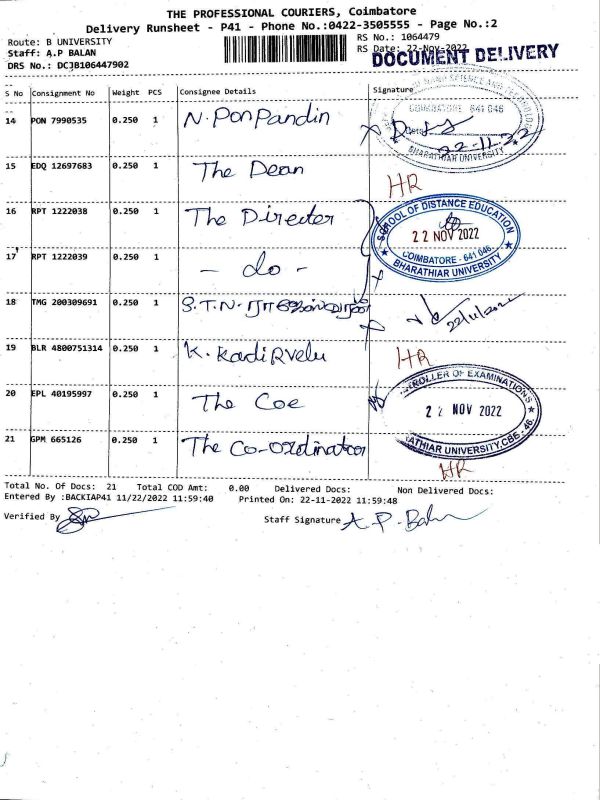 THE PROFESSIONAL COURIERS, Coimbatore
Delivery Runsheet - P41 - Phone No.:0422-3505555 - Page No.:2
Route: B UNIVERSITY
RS No.: 1064479
Staff: A.P BALAN
RS Date: 22-Nov-2022
DOCUMENT DELIVERY
DRS No.: DCJB106447902
S No Consignment No Weight PCS Consignee Details Signature
14 PON 7990535 0.250 1 N. PonPandin
COIMBATORE 641 046
22-11-22
BHARATHIAR UNIVERSITY
15 EDQ 12697683 0.250 1 The Dean
HR
16 RPT 1222038 0.250 1 The Director
SCHOOL OF DISTANCE EDUCATION
22 NOV 2022
COIMBATORE - 641 046
BHARATHIAR UNIVERSITY
17 RPT 1222039 0.250 1 - do -
18 TMG 200309691 0.250 1 S.T.N.
22/11/2022
19 BLR 4800751314 0.250 1 K. Kadirvelu
HR
20 EPL 40195997 0.250 1 The Coe
ROLLER OF EXAMINATIONS
22 NOV 2022
ATHIAR UNIVERSITY, CBE - 46
21 GPM 665126 0.250 1 The Co-ordinator
HR
Total No. Of Docs: 21 Total COD Amt: 0.00 Delivered Docs: Non Delivered Docs:
Entered By :BACKIAP41 11/22/2022 11:59:40 Printed On: 22-11-2022 11:59:48
Verified By
Staff Signature A. P. Balan